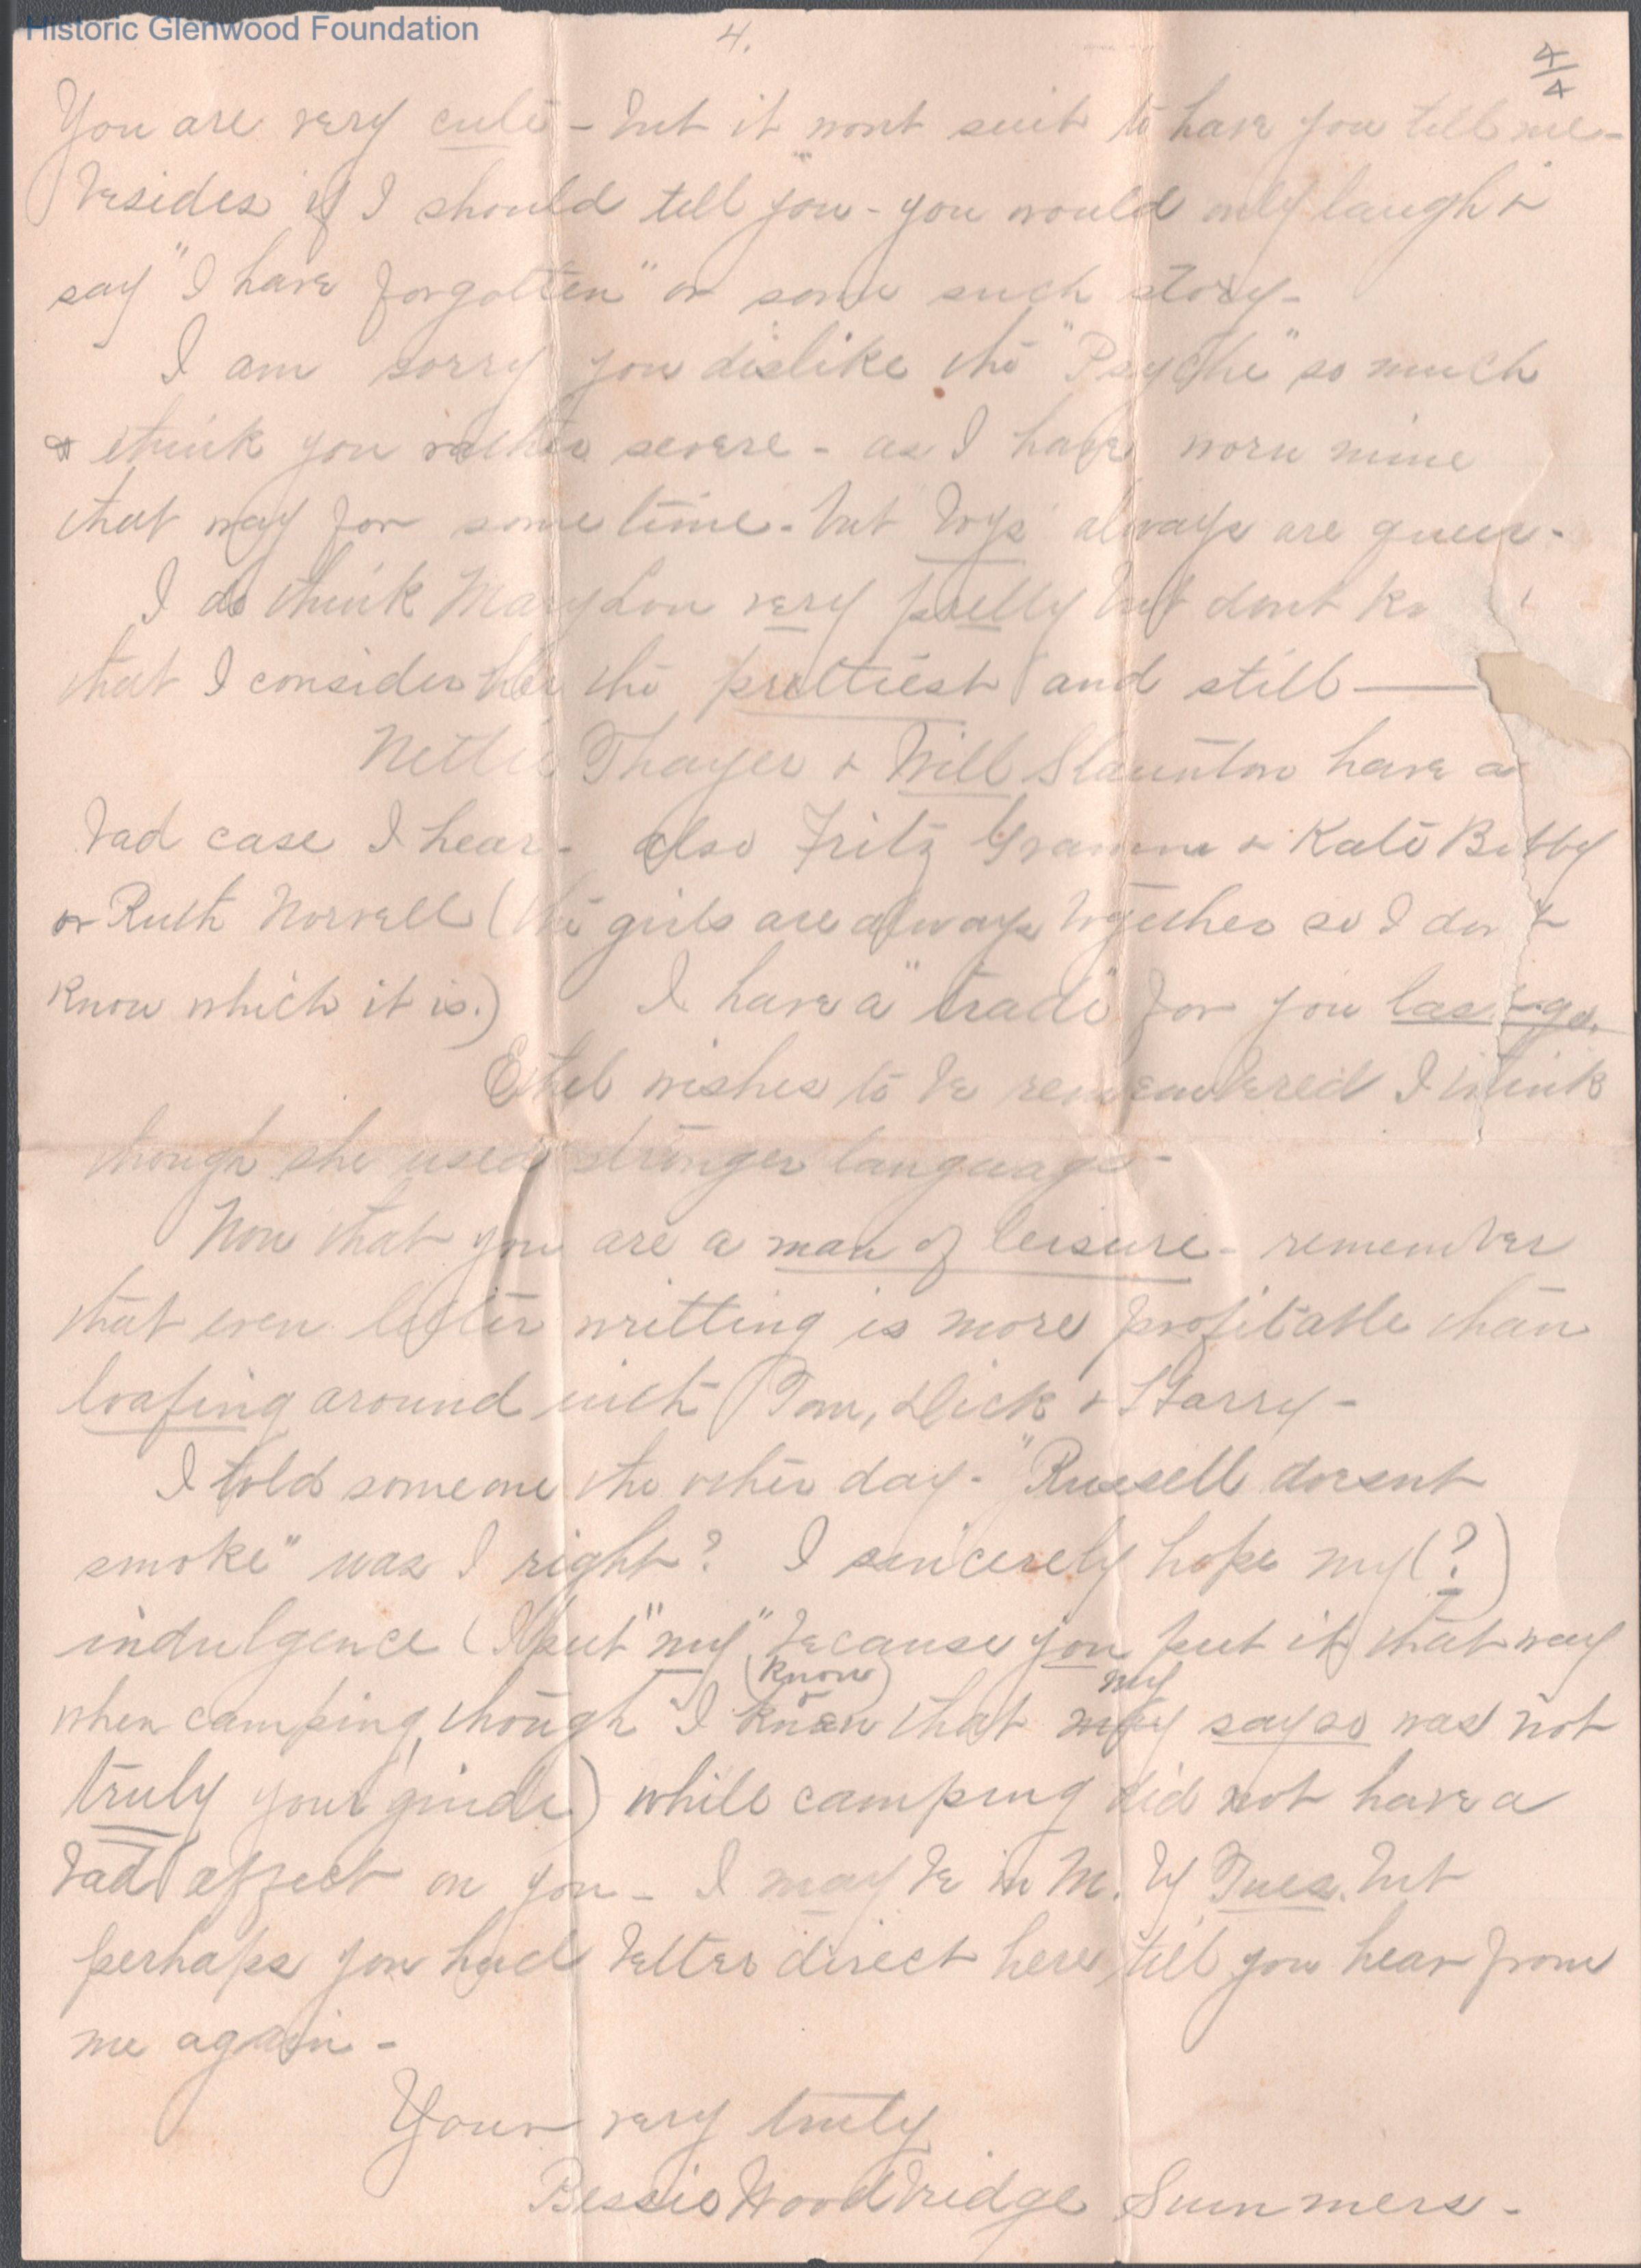 Historic Glenwood Foundation
4.
4/4
You are very cute - but it wont suit to have you tell me -
besides if I should tell you - you would only laugh &
say "I have forgotten" or some such story -
I am sorry you dislike the "Psyche" so much
& think you rather severe - as I have worn mine
that way for some time - but boys always are queer -
I do think Mary Lou very pretty but dont
that I consider her the prettiest and still —
Nettie Thayer & Will Staunton have a
bad case I hear - also Fritz & Kate
or Ruth Norvell (the girls are always together so I don't
know which it is.) I have a "trade" for you
Ethel wishes to be remembered I think
though she used stronger language -
Now that you are a man of leisure - remember
that even letter writting is more profitable than
loafing around with Tom, Dick & Harry -
I told someone the other day - "Russell doesnt
smoke" was I right? I sincerely hope my (?)
indulgence (I put "my" because you put it that way
(know)
my
when camping, though I know that say so was not
truly your guide) while camping did not have a
bad affect on you - I may be in M. by Tues. but
perhaps you had better direct here, till you hear from
me again -
Your very truly
Bessie Woodbridge Summers -